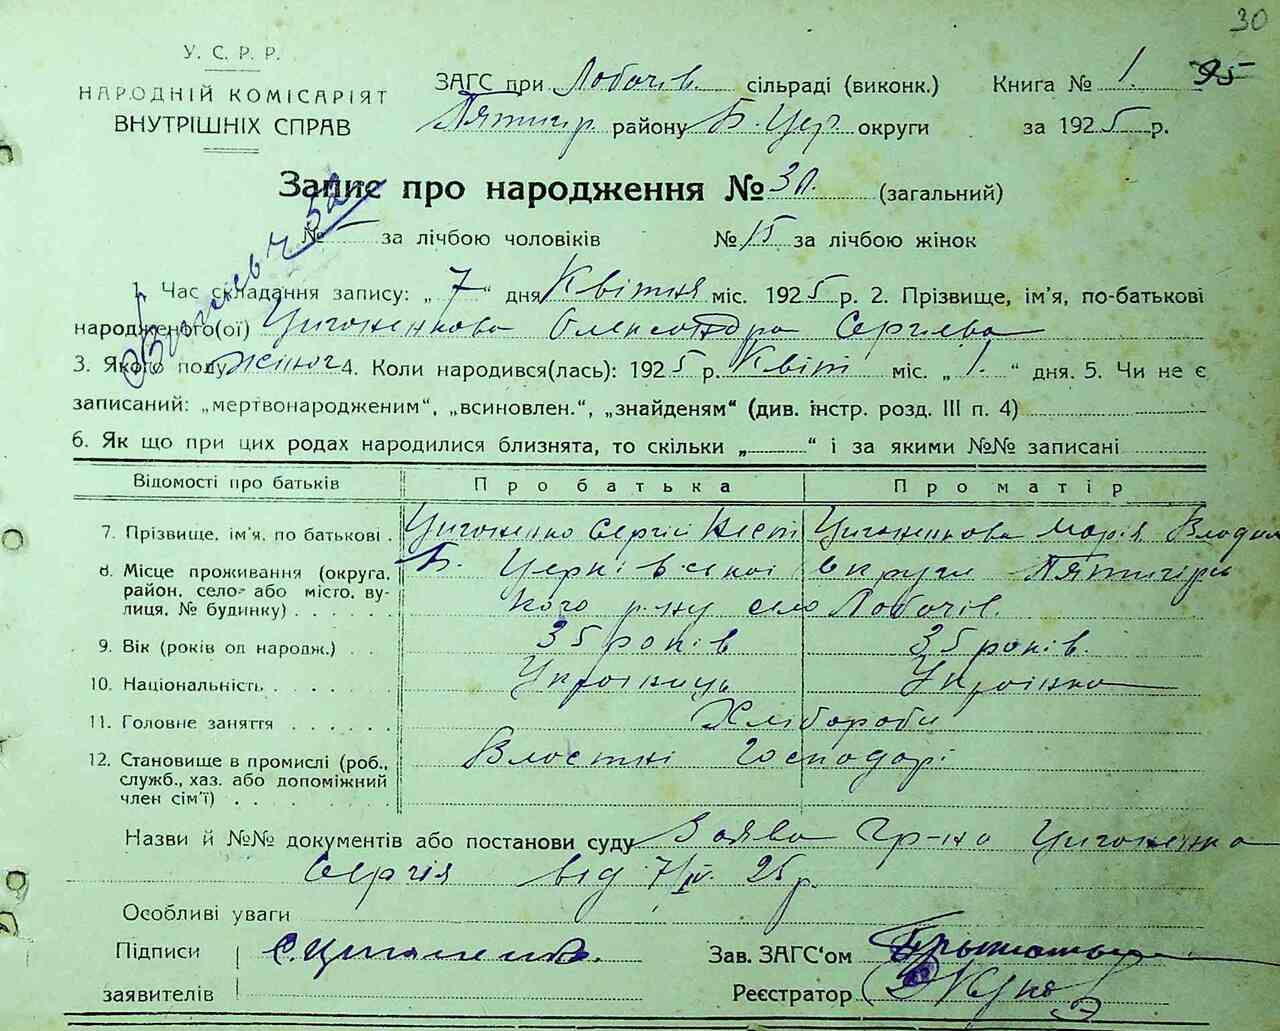 30
У. С. Р. Р.
НАРОДНІЙ КОМІСАРІЯТ
ВНУТРІШНІХ СПРАВ
ЗАГС при Лобачів. сільраді (виконк.) Книга № 1. 95
Пятигр. району Б. Цер. округи за 1925 р.
Запис про народження № 30. (загальний)
№ - за лічбою чоловіків № 15 за лічбою жінок
1. Час складання запису: „ 7 “ дня Квітня міс. 1925 р. 2. Прізвище, ім'я, по-батькові
народженого(ої) Цигоненкова Олександра Сергієва
3. Якого полу жіноч 4. Коли народився(лась): 1925 р. Квіт міс. „ 1. “ дня. 5. Чи не є
записаний: „мертвонародженим“, „всиновлен.“, „знайденям“ (див. інстр. розд. III п. 4)
6. Як що при цих родах народилися близнята, то скільки „ “ і за якими №№ записані
Відомості про батьків Про батька Про матір
7. Прізвище, ім'я, по батькові . Цигоненко Сергій Несті Цигоненкова Марія Влодим
8. Місце проживання (округа, Б. Церківської округи Пятигірсь
район, село або місто, ву-
лиця, № будинку) . . . . . кого р-ну село Лобачів.
9. Вік (років од народж.) . . 35 років 35 років.
10. Національність . . . . . Украінець Украінка
11. Головне заняття . . . . . Хлібороби
12. Становище в промислі (роб., Властні Господарі
служб., хаз. або допоміжний
член сім'ї) . . . . . . . .
Назви й №№ документів або постанови суду Заява Гр-на Цигоненка
Сергія від 7/IV. 25 р.
Особливі уваги
Підписи С. Цигоненко. Зав. ЗАГС'ом
заявителів Реєстратор